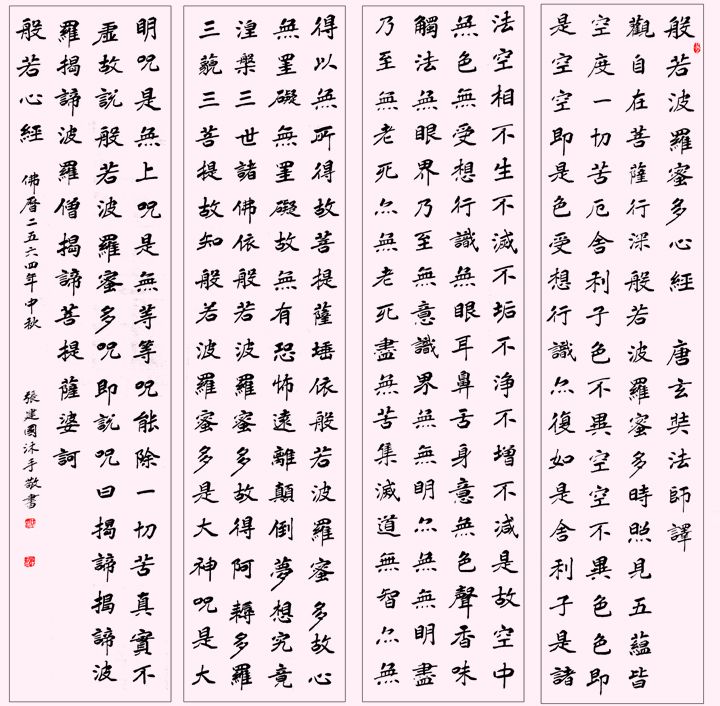 般若波羅蜜多心經 唐玄奘法師譯
觀自在菩薩行深般若波羅蜜多時照見五蘊皆
空度一切苦厄舍利子色不異空空不異色色即
是空空即是色受想行識亦復如是舍利子是諸
法空相不生不滅不垢不淨不增不減是故空中
無色無受想行識無眼耳鼻舌身意無色聲香味
觸法無眼界乃至無意識界無無明亦無無明盡
乃至無老死亦無老死盡無苦集滅道無智亦無
得以無所得故菩提薩埵依般若波羅蜜多故心
無罣礙無罣礙故無有恐怖遠離顛倒夢想究竟
涅槃三世諸佛依般若波羅蜜多故得阿耨多羅
三藐三菩提故知般若波羅蜜多是大神咒是大
明咒是無上咒是無等等咒能除一切苦真實不
虛故說般若波羅蜜多咒即說咒曰揭諦揭諦波
羅揭諦波羅僧揭諦菩提薩婆訶
般若心經 佛曆二五六四年中秋 張建國沐手敬書